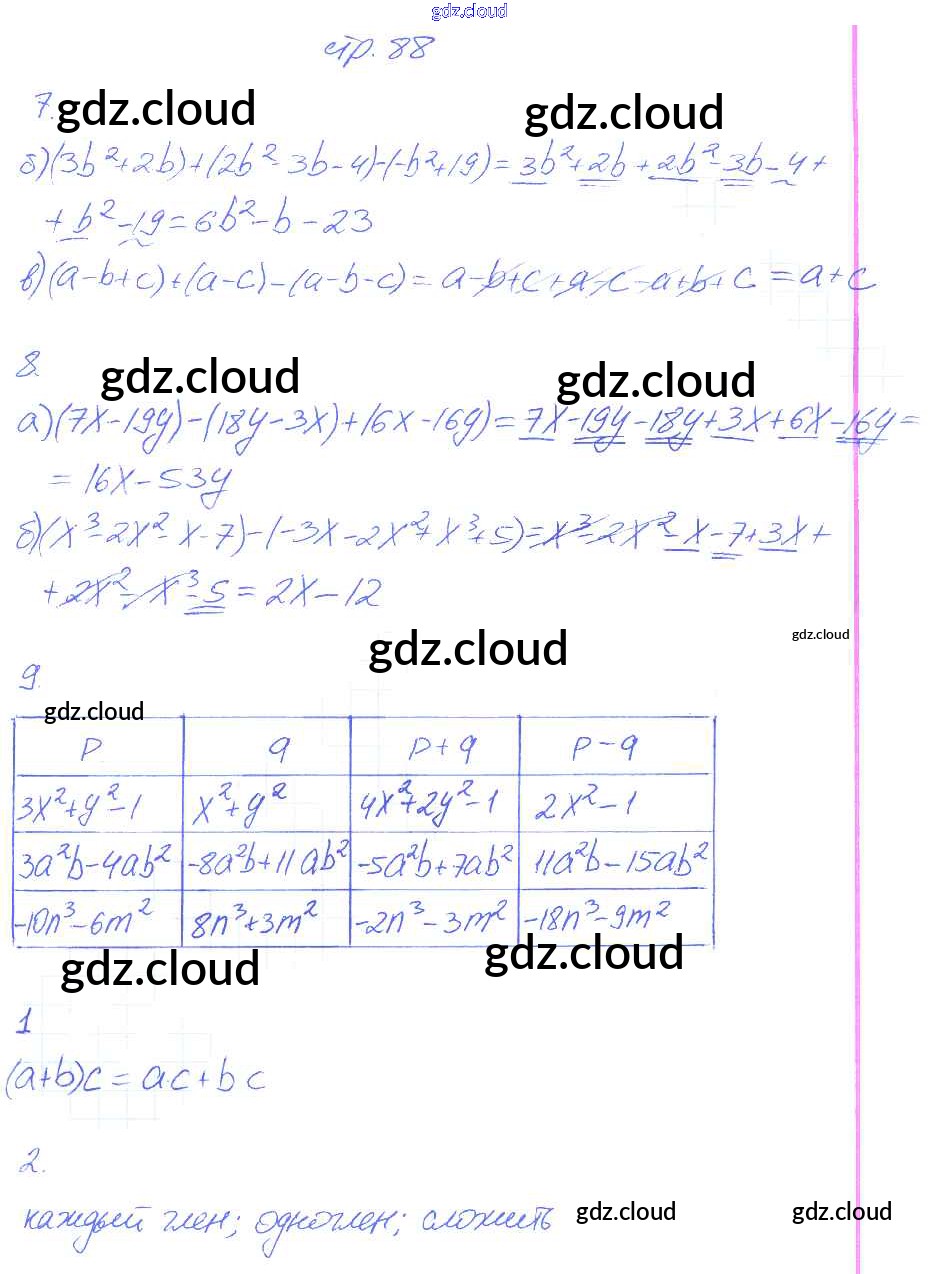 gdz.cloud
стр. 88
7. gdz.cloud gdz.cloud
б) (3b²+2b)+(2b²-3b-4)-(-b²+19)=3b²+2b+2b²-3b-4+
+b²-19=6b²-b-23
в) (a-b+c)+(a-c)-(a-b-c)=a-b+c+a-c-a+b+c=a+c
8. gdz.cloud gdz.cloud
а) (7x-19y)-(18y-3x)+(6x-16y)=7x-19y-18y+3x+6x-16y=
=16x-53y
б) (x³-2x²-x-7)-(-3x-2x²+x³+5)=x³-2x²-x-7+3x+
+2x²-x³-5=2x-12
gdz.cloud gdz.cloud
9.
gdz.cloud
p q p+q p-q
3x²+y²-1 x²+y² 4x²+2y²-1 2x²-1
3a²b-4ab² -8a²b+11ab² -5a²b+7ab² 11a²b-15ab²
-10n³-6m² 8n³+3m² -2n³-3m² -18n³-9m²
gdz.cloud gdz.cloud
1
(a+b)c=ac+bc
2.
каждый член; одночлен; сложить gdz.cloud gdz.cloud